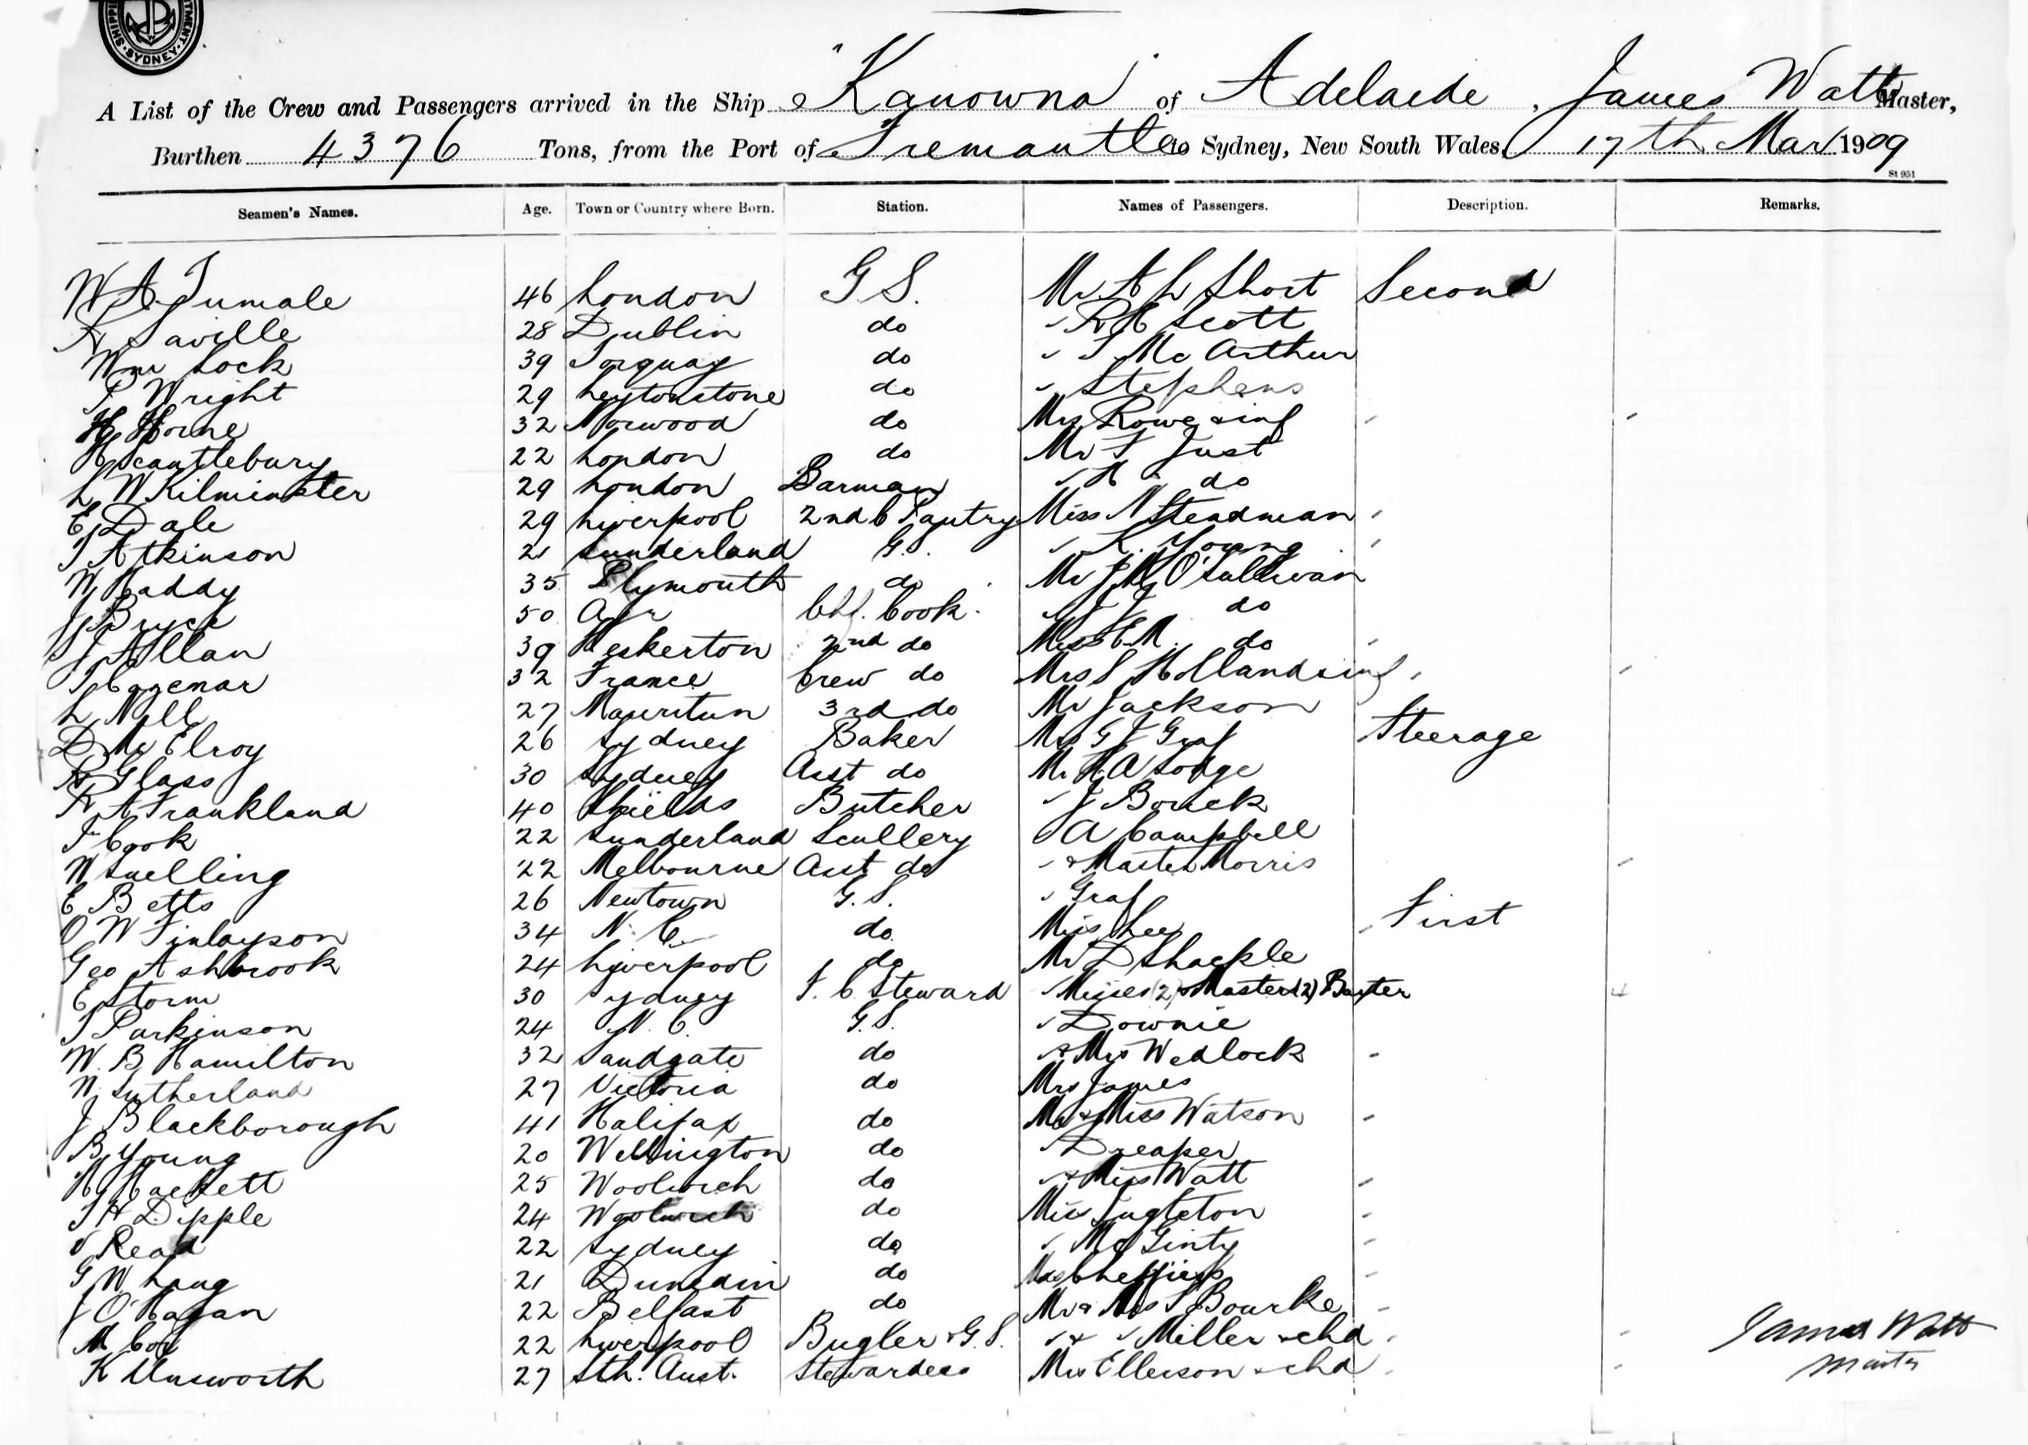 SHIPPI
TMENT
SYDNEY
A List of the Crew and Passengers arrived in the Ship "Kanowna" of Adelaide, James Watt Master,
Burthen 4376 Tons, from the Port of Fremantle to Sydney, New South Wales, 17th Mar 1909
St 951
Seamen's Names. Age. Town or Country where Born. Station. Names of Passengers. Description. Remarks.
W A 46 London G S. Mr A L Short Second
R Saville 28 Dublin do " R E Scott
Wm Lock 39 Torquay do " T McArthur
P Wright 29 Leytonstone do " Stephens
H Horne 32 Norwood do Mrs Rowe & inf
H Scantlebury 22 London do Mr F Just
L W Kilminster 29 London Barman " H " do
E Dale 29 Liverpool 2nd C Pantry Miss N Steadman
T Atkinson 21 Sunderland G. " K. Young
W Haddy 35 Plymouth do Mr J M O'Sullivan
J Bryce 50 Ayr Chf. Cook " J J do
J Allan 39 Heskerton 2nd do Miss E M. do
32 France Crew do Mrs S Holland & inf
L Nill 27 3rd do Mr Jackson
D McElroy 26 Sydney Baker Mrs G J Graf Steerage
R Glass 30 Sydney Asst do Mr H A Lodge
R A Frankland 40 Shields Butcher " J Borick
T Cook 22 Sunderland Scullery A Campbell
W Snelling 22 Melbourne Asst do " & Master Morris
E Betts 26 Newtown G. S. " Graf
O W Finlayson 34 N. C. do Miss Lee First
Geo Ashbrook 24 Liverpool do Mr D Shackle
E Storm 30 Sydney F. C. Steward " Misses (2) & Masters (2) Baxter 4
T Parkinson 24 N. C. G.S. " Downie
W. B Hamilton 32 Sandgate do " & Mrs Wedlock
N Sutherland 27 Victoria do Mrs James
J Blackborough 41 Halifax do Mr & Miss Watson
B Young 20 Wellington do " Dreaper
H Hackett 25 Woolwich do " & Miss Watt
T H Dipple 24 Woolwich do Miss Ingleton
Read 22 Sydney do " McGinty
G W Lang 21 Dunedin do
J O'Hagan 22 Belfast do Mr & Mrs T Bourke
M Coy 22 Liverpool Bugler & G.S. " & " Miller & chd
K Unsworth 27 Sth. Aust. Stewardess Mrs Ellerson & chd
James Watt
Master